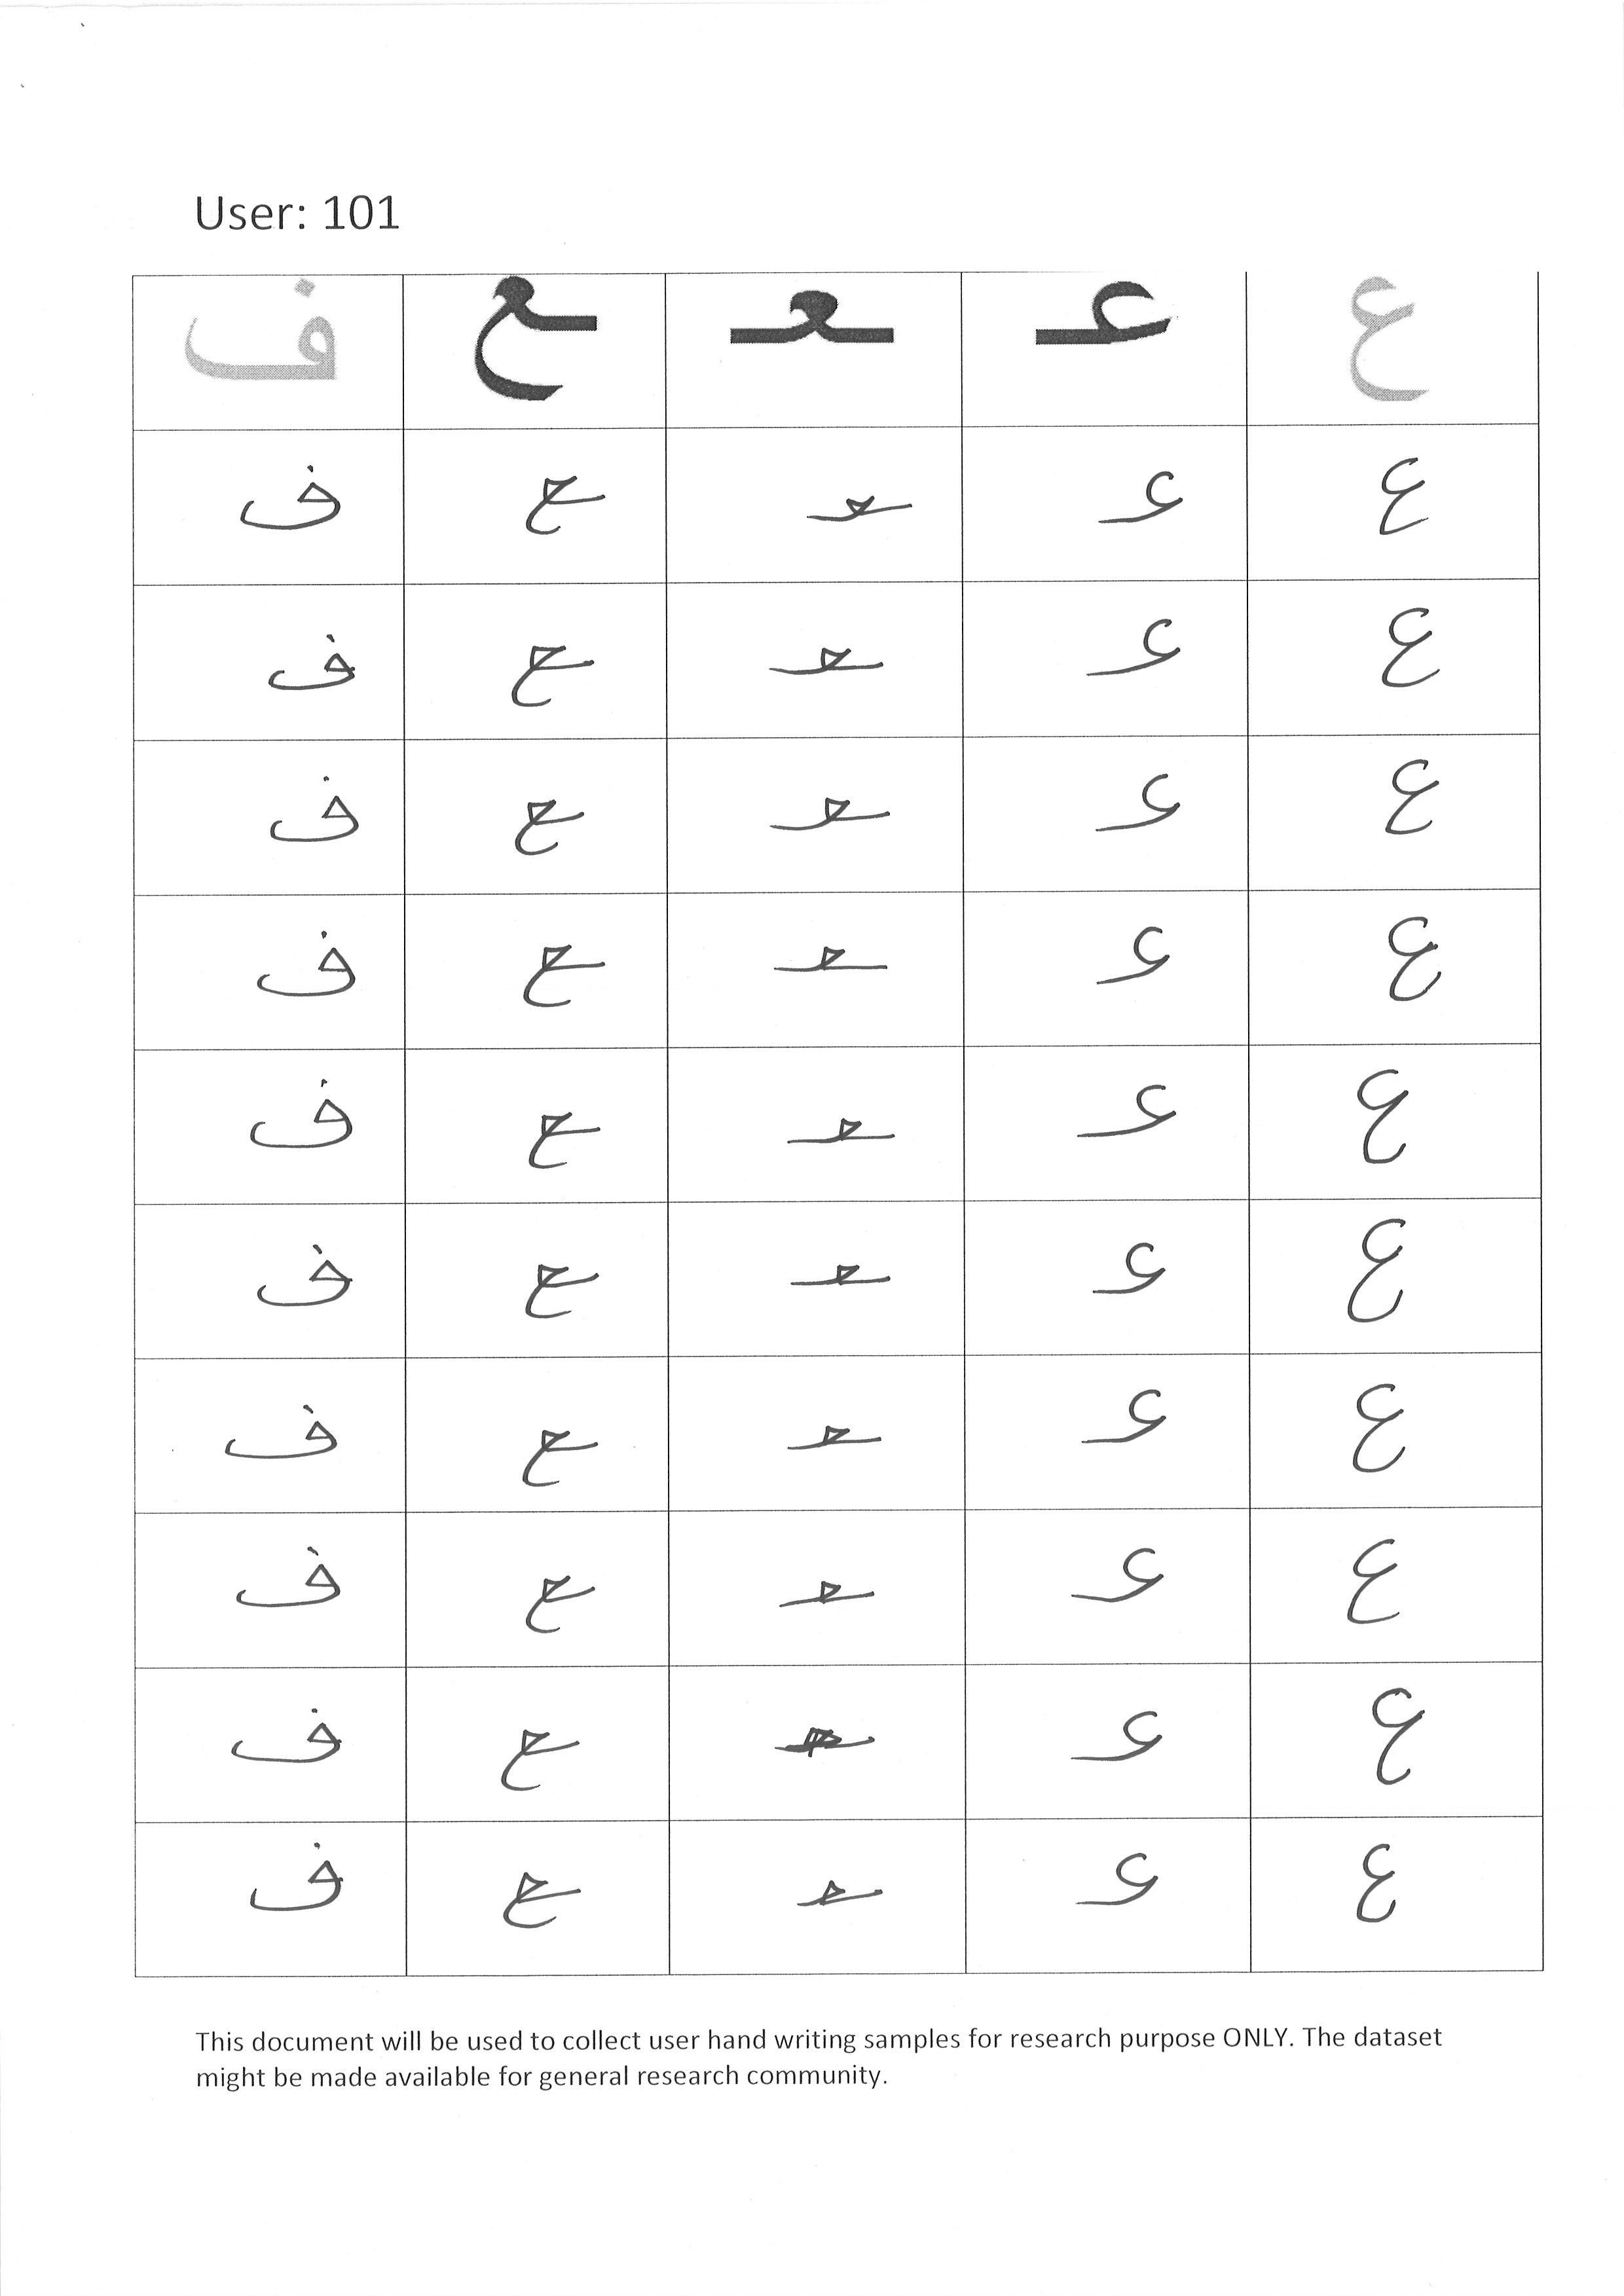 User: 101
ع عـ ـعـ ـع ف
ع عـ ـعـ ـع ف
ع عـ ـعـ ـع ف
ع عـ ـعـ ـع ف
ع عـ ـعـ ـع ف
ع عـ ـعـ ـع ف
ع عـ ـعـ ـع ف
ع عـ ـعـ ـع ف
ع عـ ـعـ ـع ف
ع عـ ـع ف
ع عـ ـعـ ـع ف
This document will be used to collect user hand writing samples for research purpose ONLY. The dataset
might be made available for general research community.